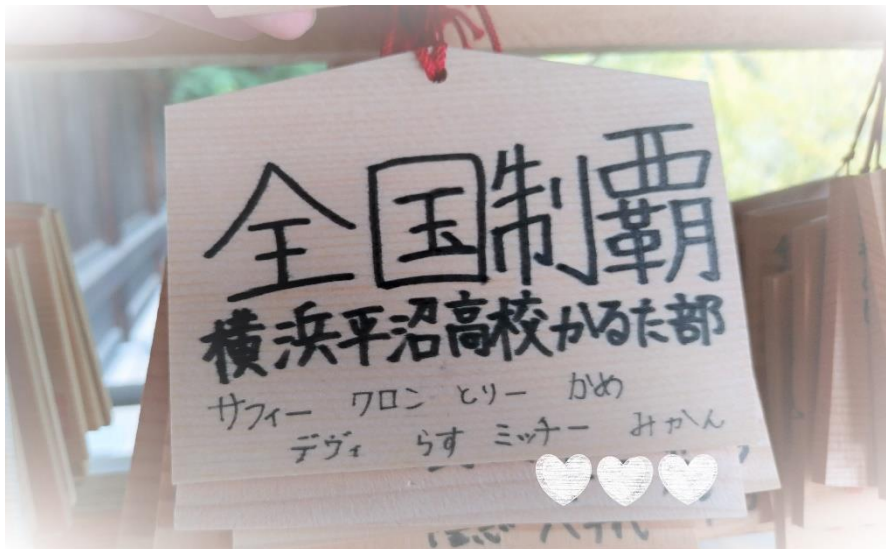 全国制覇
横浜平沼高校かるた部
サフィー ワロン とりー かめ
デヴィ らす ミッチー みかん